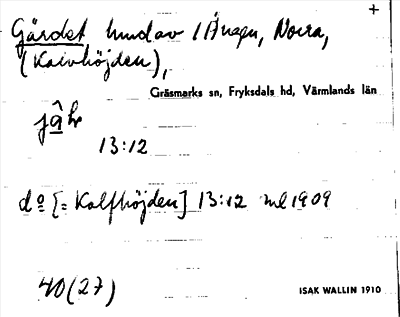 +
Gärdet hmdav /Ängen, Norra,
(Kalvhöjden),
Gräsmarks sn, Fryksdals hd, Värmlands län
13:12
do [= Kalfhöjden] 13:12 ml 1909
40(27)
ISAK WALLIN 1910